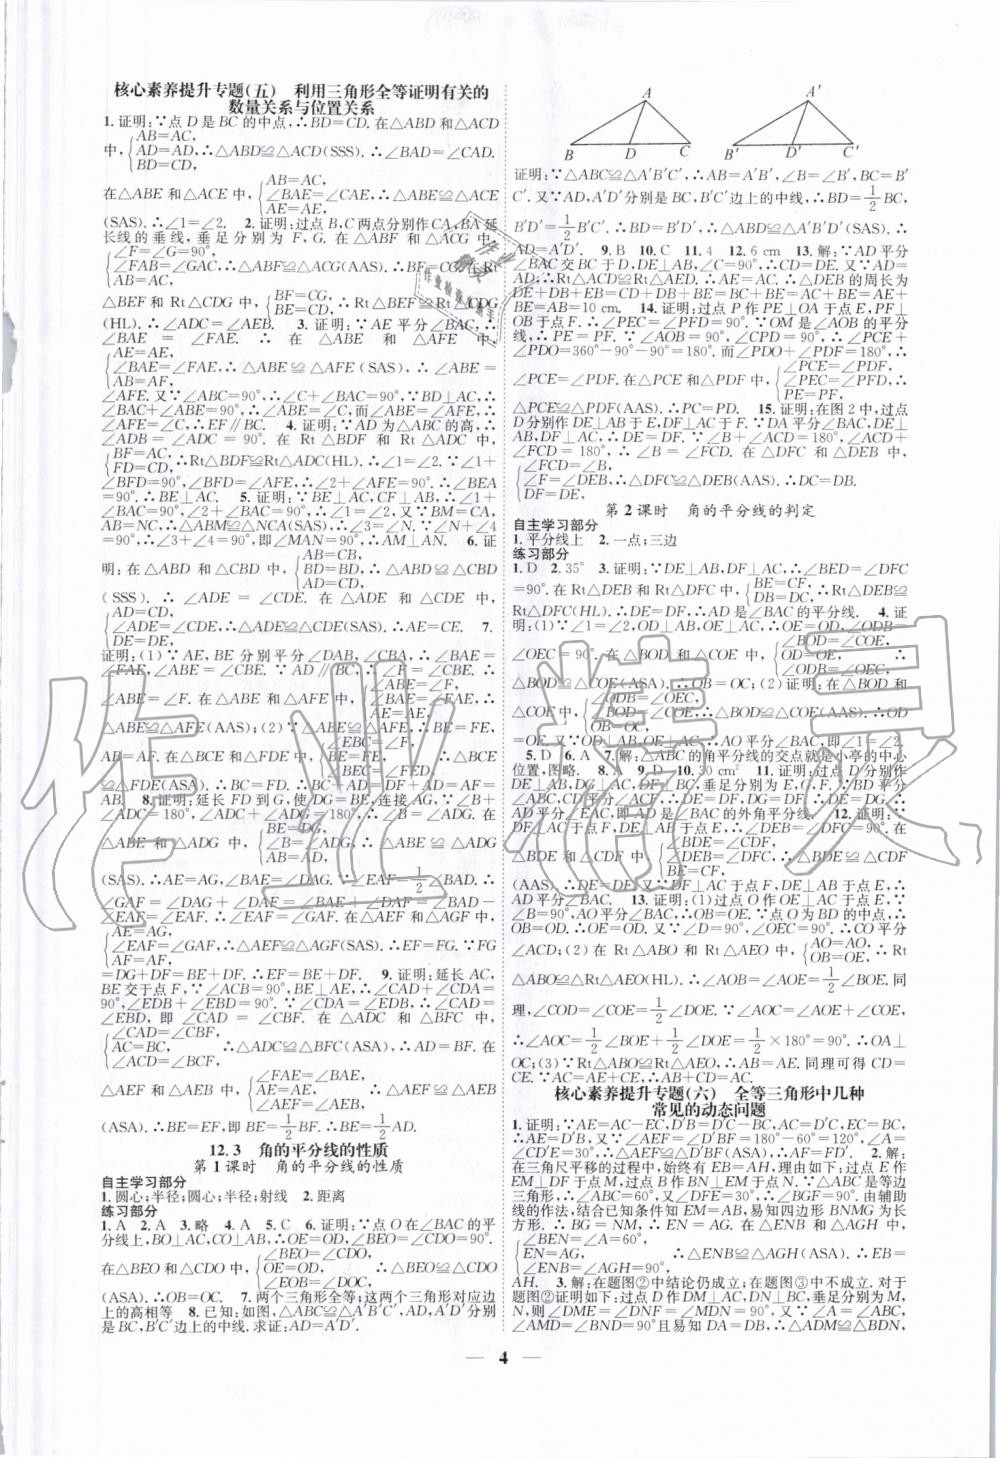 核心素养提升专题(五) 利用三角形全等证明有关的
数量关系与位置关系
1.证明:∵点 D 是 BC 的中点,∴BD=CD. 在△ABD 和△ACD
中,{AB=AC,
AD=AD, ∴△ABD≌△ACD(SSS). ∴∠BAD=∠CAD.
BD=CD,
在△ABE 和△ACE 中,{AB=AC,
∠BAE=∠CAE, ∴△ABE≌△ACE
AE=AE,
(SAS). ∴∠1=∠2. 2.证明:过点 B,C 两点分别作 CA,BA 延
长线的垂线,垂足分别为 F,G. 在△ABF 和△ACG 中,
{∠F=∠G=90°,
∠FAB=∠GAC, ∴△FAB≌△GAC(AAS). ∴BF=CG. 在 Rt
AB=AC,
△BEF 和 Rt△CDG 中,{BF=CG,
BE=CD, ∴Rt△BEF≌Rt△CDG
(HL). ∴∠ADC=∠AEB. 3.证明:∵AE 平分∠BAC,∴
∠BAE=∠FAE. 在△ABE 和△AFE 中,
{AE=AE,
∠BAE=∠FAE, ∴△ABE≌△AFE(SAS). ∴∠ABE=
AB=AF,
∠AFE. 又∵∠ABC=90°,∴∠C+∠BAC=90°,∵BD⊥AC,∴
∠BAC+∠ABE=90°,∴∠ABE=∠C,而∠ABE=∠AFE,∴
∠AFE=∠C,∴EF∥BC. 4.证明:∵AD 为△ABC 的高,∴
∠ADB=∠ADC=90°. 在 Rt△BDF 和 Rt△ADC 中,
{BF=AC,
FD=CD, ∴Rt△BDF≌Rt△ADC(HL). ∴∠1=∠2. ∵∠1+
∠BFD=90°,∠BFD=∠AFE,∴∠2+∠AFE=90°. ∴∠BEA
=90°. ∴BE⊥AC. 5.证明:∵BE⊥AC,CF⊥AB,∴∠1+
∠BAC=90°,∠2+∠BAC=90°,∴∠1=∠2,又∵BM=CA,
AB=NC,∴△ABM≌△NCA(SAS),∴∠3=∠N. ∵∠N+∠4
=90°,∴∠3+∠4=90°,即∠MAN=90°,∴AM⊥AN. 6.证
明:在△ABD 和△CBD 中,{AB=CB,
BD=BD, ∴△ABD≌△CBD
AD=CD,
(SSS). ∴∠ADE=∠CDE. 在△ADE 和△CDE 中,
{AD=CD,
∠ADE=∠CDE, ∴△ADE≌△CDE(SAS). ∴AE=CE. 7.
DE=DE,
证明:(1)∵AE,BE 分别平分∠DAB,∠CBA,∴∠BAE=∠FAE,
∠ABE=∠CBE. ∵AD∥BC,∴∠F=∠CBE. ∴
∠ABE=∠F. 在△ABE 和△AFE 中,{∠BAE=∠FAE,
∠ABE=∠F, ∴
AE=AE,
△ABE≌△AFE(AAS);(2)∵△ABE≌△AFE,∴BE=FE,
AB=AF. 在△BCE 和△FDE 中,{∠EBC=∠F,
BE=FE, ∴△BCE
≌△FDE(ASA). ∴BC=FD. ∴BC+AD=DF+AD=AF=
AB. 8.证明:延长 FD 到 G,使 DG=BE,连接 AG,∵∠B+
∠ADC=180°,∠ADC+∠ADG=180°,∴∠B=∠ADG. 在
△ABE 和△ADG 中,{BE=DG,
∠B=∠ADG, ∴△ABE≌△ADG
AB=AD,
(SAS). ∴AE=AG,∠BAE=∠DAG. ∵∠EAF=1/2∠BAD. ∴
∠GAF=∠DAG+∠DAF=∠BAE+∠DAF=∠BAD-
∠EAF=∠EAF. 在△AEF 和△AGF 中,
{AE=AG,
∠EAF=∠GAF, ∴△AEF≌△AGF(SAS). ∴EF=FG. ∵FG
AF=AF,
=DG+DF=BE+DF. ∴EF=BE+DF. 9.证明:延长 AC,
BE 交于点 F,∵∠ACB=90°,BE⊥AE,∴∠CAD+∠CDA=
90°,∠EDB+∠EBD=90°. ∵∠CDA=∠EDB,∴∠CAD=
∠EBD,即∠CAD=∠CBF. 在△ADC 和△BFC 中,
{∠CAD=∠CBF,
AC=BC, ∴△ADC≌△BFC(ASA). ∴AD=BF. 在
∠ACD=∠BCF,
△AEF 和△AEB 中,{∠FAE=∠BAE,
AE=AE, ∴△AEF≌△AEB
∠AEF=∠AEB,
(ASA). ∴BE=EF,即 BE=1/2BF. ∴BE=1/2AD.
12.3 角的平分线的性质
第 1 课时 角的平分线的性质
自主学习部分
1.圆心;半径;圆心;半径;射线 2.距离
练习部分
1.A 2.A 3.略 4.A 5.C 6.证明:∵点 O 在∠BAC 的平
分线上,BO⊥AC,CO⊥AB,∴OE=OD,∠BEO=∠CDO=90°.
在△BEO 和△CDO 中,{∠BEO=∠CDO,
OE=OD, ∴△BEO≌△CDO
∠BOE=∠COD,
(ASA). ∴OB=OC. 7.两个三角形全等;这两个三角形对应边
上的高相等 8.已知:如图,△ABC≌△A′B′C′,AD,A′D′分别
是 BC,B′C′边上的中线. 求证:AD=A′D′.
A A′
B D C B′ D′ C′
证明:∵△ABC≌△A′B′C′,∴AB=A′B′,∠B=∠B′,BC=B′
C′. 又∵AD,A′D′分别是 BC,B′C′边上的中线,∴BD=1/2BC,
B′D′=1/2B′C′. ∴BD=B′D′. ∴△ABD≌△A′B′D′(SAS). ∴
AD=A′D′. 9.B 10.C 11.4 12.6 cm 13.解:∵AD 平分
∠BAC 交 BC 于 D,DE⊥AB,∠C=90°,∴CD=DE.
∴Rt△ACD≌Rt△AED. ∴AC=AE. ∴△DEB 的周长为
DE+DB+EB=CD+DB+BE=BC+BE=AC+BE=AE+
BE=AB=10 cm. 14.证明:过点 P 作 PE⊥OA 于点 E,PF⊥
OB 于点 F. ∴∠PEC=∠PFD=90°. ∵OM 是∠AOB 的平分
线,∴PE=PF. ∵∠AOB=90°,∠CPD=90°,∴∠PCE+
∠PDO=360°-90°-90°=180°. 而∠PDO+∠PDF=180°,∴
∠PCE=∠PDF. 在△PCE 和△PDF 中,{∠PCE=∠PDF,
∠PEC=∠PFD, ∴
PE=PF,
△PCE≌△PDF(AAS). ∴PC=PD. 15.证明:在图 2 中,过点
D 分别作 DE⊥AB 于 E,DF⊥AC 于 F. ∵DA 平分∠BAC,DE⊥
AB,DF⊥AC,∴DE=DF. ∵∠B+∠ACD=180°,∠ACD+
∠FCD=180°,∴∠B=∠FCD. 在△DFC 和△DEB 中,
{∠FCD=∠B,
∠F=∠DEB, ∴△DFC≌△DEB(AAS). ∴DC=DB.
DF=DE,
第 2 课时 角的平分线的判定
自主学习部分
1.平分线上 2.一点;三边
练习部分
1.D 2.35° 3.证明:∵DE⊥AB,DF⊥AC,∴∠BED=∠DFC
=90°. 在 Rt△DEB 和 Rt△DFC 中,{BE=CF,
DB=DC, ∴Rt△DEB≌
Rt△DFC(HL). ∴DE=DF. ∴AD 是∠BAC 的平分线. 4.证
明:(1)∵∠1=∠2,OD⊥AB,OE⊥AC,∴OE=OD,∠ODB=
∠OEC=90°. 在△BOD 和△COE 中,{∠BOD=∠COE,
OD=OE, ∴
∠ODB=∠OEC,
△BOD≌△COE(ASA). ∴OB=OC;(2)证明:在△BOD 和
△COE 中,{∠ODB=∠OEC,
∠BOD=∠COE, ∴△BOD≌△COE(AAS). ∴OD
OB=OC,
=OE. 又∵OD⊥AB,OE⊥AC,∴AO 平分∠BAC,即∠1=∠2.
5.D 6.A 7.解:△ABC 的角平分线的交点就是小亭的中心
位置,图略. 8.A 9.D 10.30 cm² 11.证明:过点 D 分别作
DE⊥AB,DG⊥AC,DF⊥BC,垂足分别为 E,G,F. ∵BD 平分
∠ABC,CD 平分∠ACF,∴DE=DF,DG=DF. ∴DE=DG. ∴
AD 平分∠EAC,即 AD 是∠BAC 的外角平分线. 12.证明:∵
DF⊥AC 于点 F,DE⊥AB 于点 E,∴∠DEB=∠DFC=90°. 在
△BDE 和△CDF 中,{∠BDE=∠CDF,
∠DEB=∠DFC, ∴△BDE≌△CDF
BE=CF,
(AAS). ∴DE=DF. 又∵DF⊥AC 于点 F,DE⊥AB 于点 E,∴
AD 平分∠BAC. 13.证明:(1)过点 O 作 OE⊥AC 于点 E,∵
∠B=90°,AO 平分∠BAC,∴OB=OE. ∵点 O 为 BD 的中点,∴
OB=OD. ∴OE=OD. 又∵∠D=90°,∠OEC=90°,∴CO 平分
∠ACD;(2)在 Rt△ABO 和 Rt△AEO 中,{AO=AO,
OB=OE, ∴Rt
△ABO≌Rt△AEO(HL). ∴∠AOB=∠AOE=1/2∠BOE. 同
理,∠COD=∠COE=1/2∠DOE. ∵∠AOC=∠AOE+∠COE,
∴∠AOC=1/2∠BOE+1/2∠DOE=1/2×180°=90°. ∴OA⊥
OC;(3)∵Rt△ABO≌Rt△AEO,∴AB=AE. 同理可得 CD=
CE. ∵AC=AE+CE. ∴AB+CD=AC.
核心素养提升专题(六) 全等三角形中几种
常见的动态问题
1.证明:∵AE=AC-EC,D′B=D′C-BC,AC=D′C,EC=BC,
∴AE=D′B. 又∵∠AEF=∠D′BF=180°-60°=120°,∠A=
∠CD′E=30°,∴△AEF≌△D′BF(ASA). ∴AF=FD′. 2.解:
在三角尺平移的过程中,始终有 EB=AH,理由:过点 E 作
EM⊥DF 于点 M,过点 N 作 NG⊥BC. ∵△ABC 是等边三
角形,∴∠ABC=60°. 又∵∠EDF=30°,∴∠BGF=90°. 由辅助
线的作法,结合已知条件知 EM=AB,易知四边形 BNMG 为长
方形. ∴BG=NM,∴EN=AG. 在△ENB 和△AGH 中,
{∠BEN=∠A=60°,
EN=AG, ∴△ENB≌△AGH(ASA). ∴EB=
∠ENB=∠AGH=90°,
AH. 3.解:在题图②中结论仍成立;在题图③中不成立. 对于
题图②证明如下:过点 D 作 DM⊥AC,DN⊥BC,垂足分别为 M,
N,则∠DME=∠DNF=∠MDN=90°,又∵∠A=∠B,
∠AMD=∠BND=90°且易知 DA=DB,∴△ADM≌△BDN,
4
作业精灵